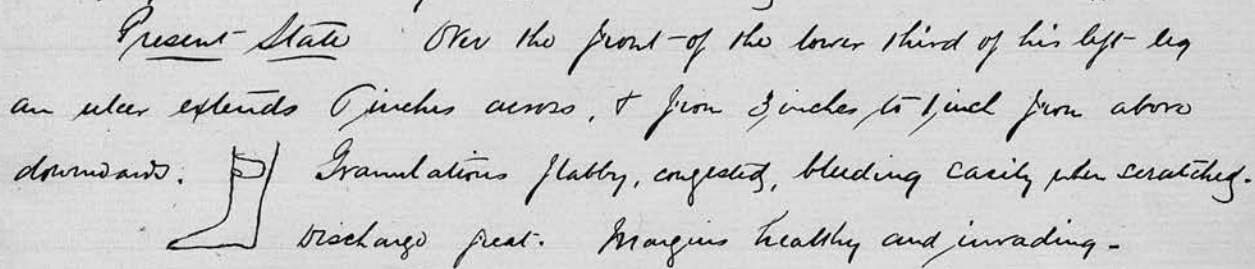 Present State Over the front of the lower third of his left leg
an ulcer extends 6 inches across, & from 3 inches to 1 inch from above
downwards. Granulations flabby, congested, bleeding easily when scratched.
Discharge great. Margins healthy and invading.